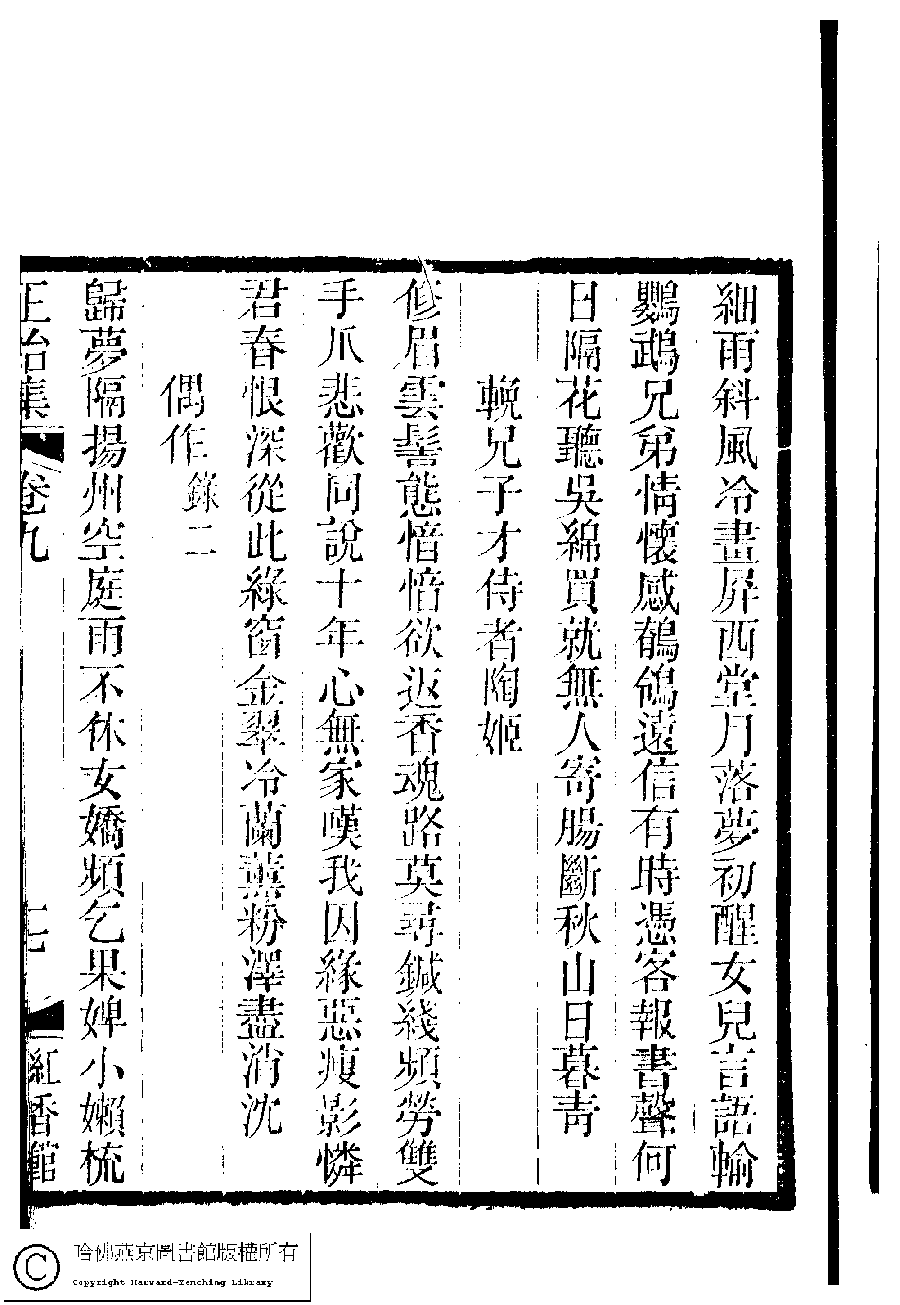 細雨斜風冷畫屏西堂月落夢初醒女兒言語輸
鸚鵡兄弟情懷感鶺鴒遠信有時憑客報書聲何
日隔花聽吳綿買就無人寄腸斷秋山日暮青
輓兄子才侍者陶姬
修眉雲髻態愔愔欲返香魂路莫尋鍼綫頻勞雙
手爪悲歡同說十年心無家嘆我因緣惡瘦影憐
君春恨深從此綠窗金翠冷蘭薰粉澤盡消沈
偶作錄二
歸夢隔揚州空庭雨不休女嬌頻乞果婢小嬾梳
正始集 卷九 紅香館
哈佛燕京圖書館版權所有
Copyright Harvard-Yenching Library